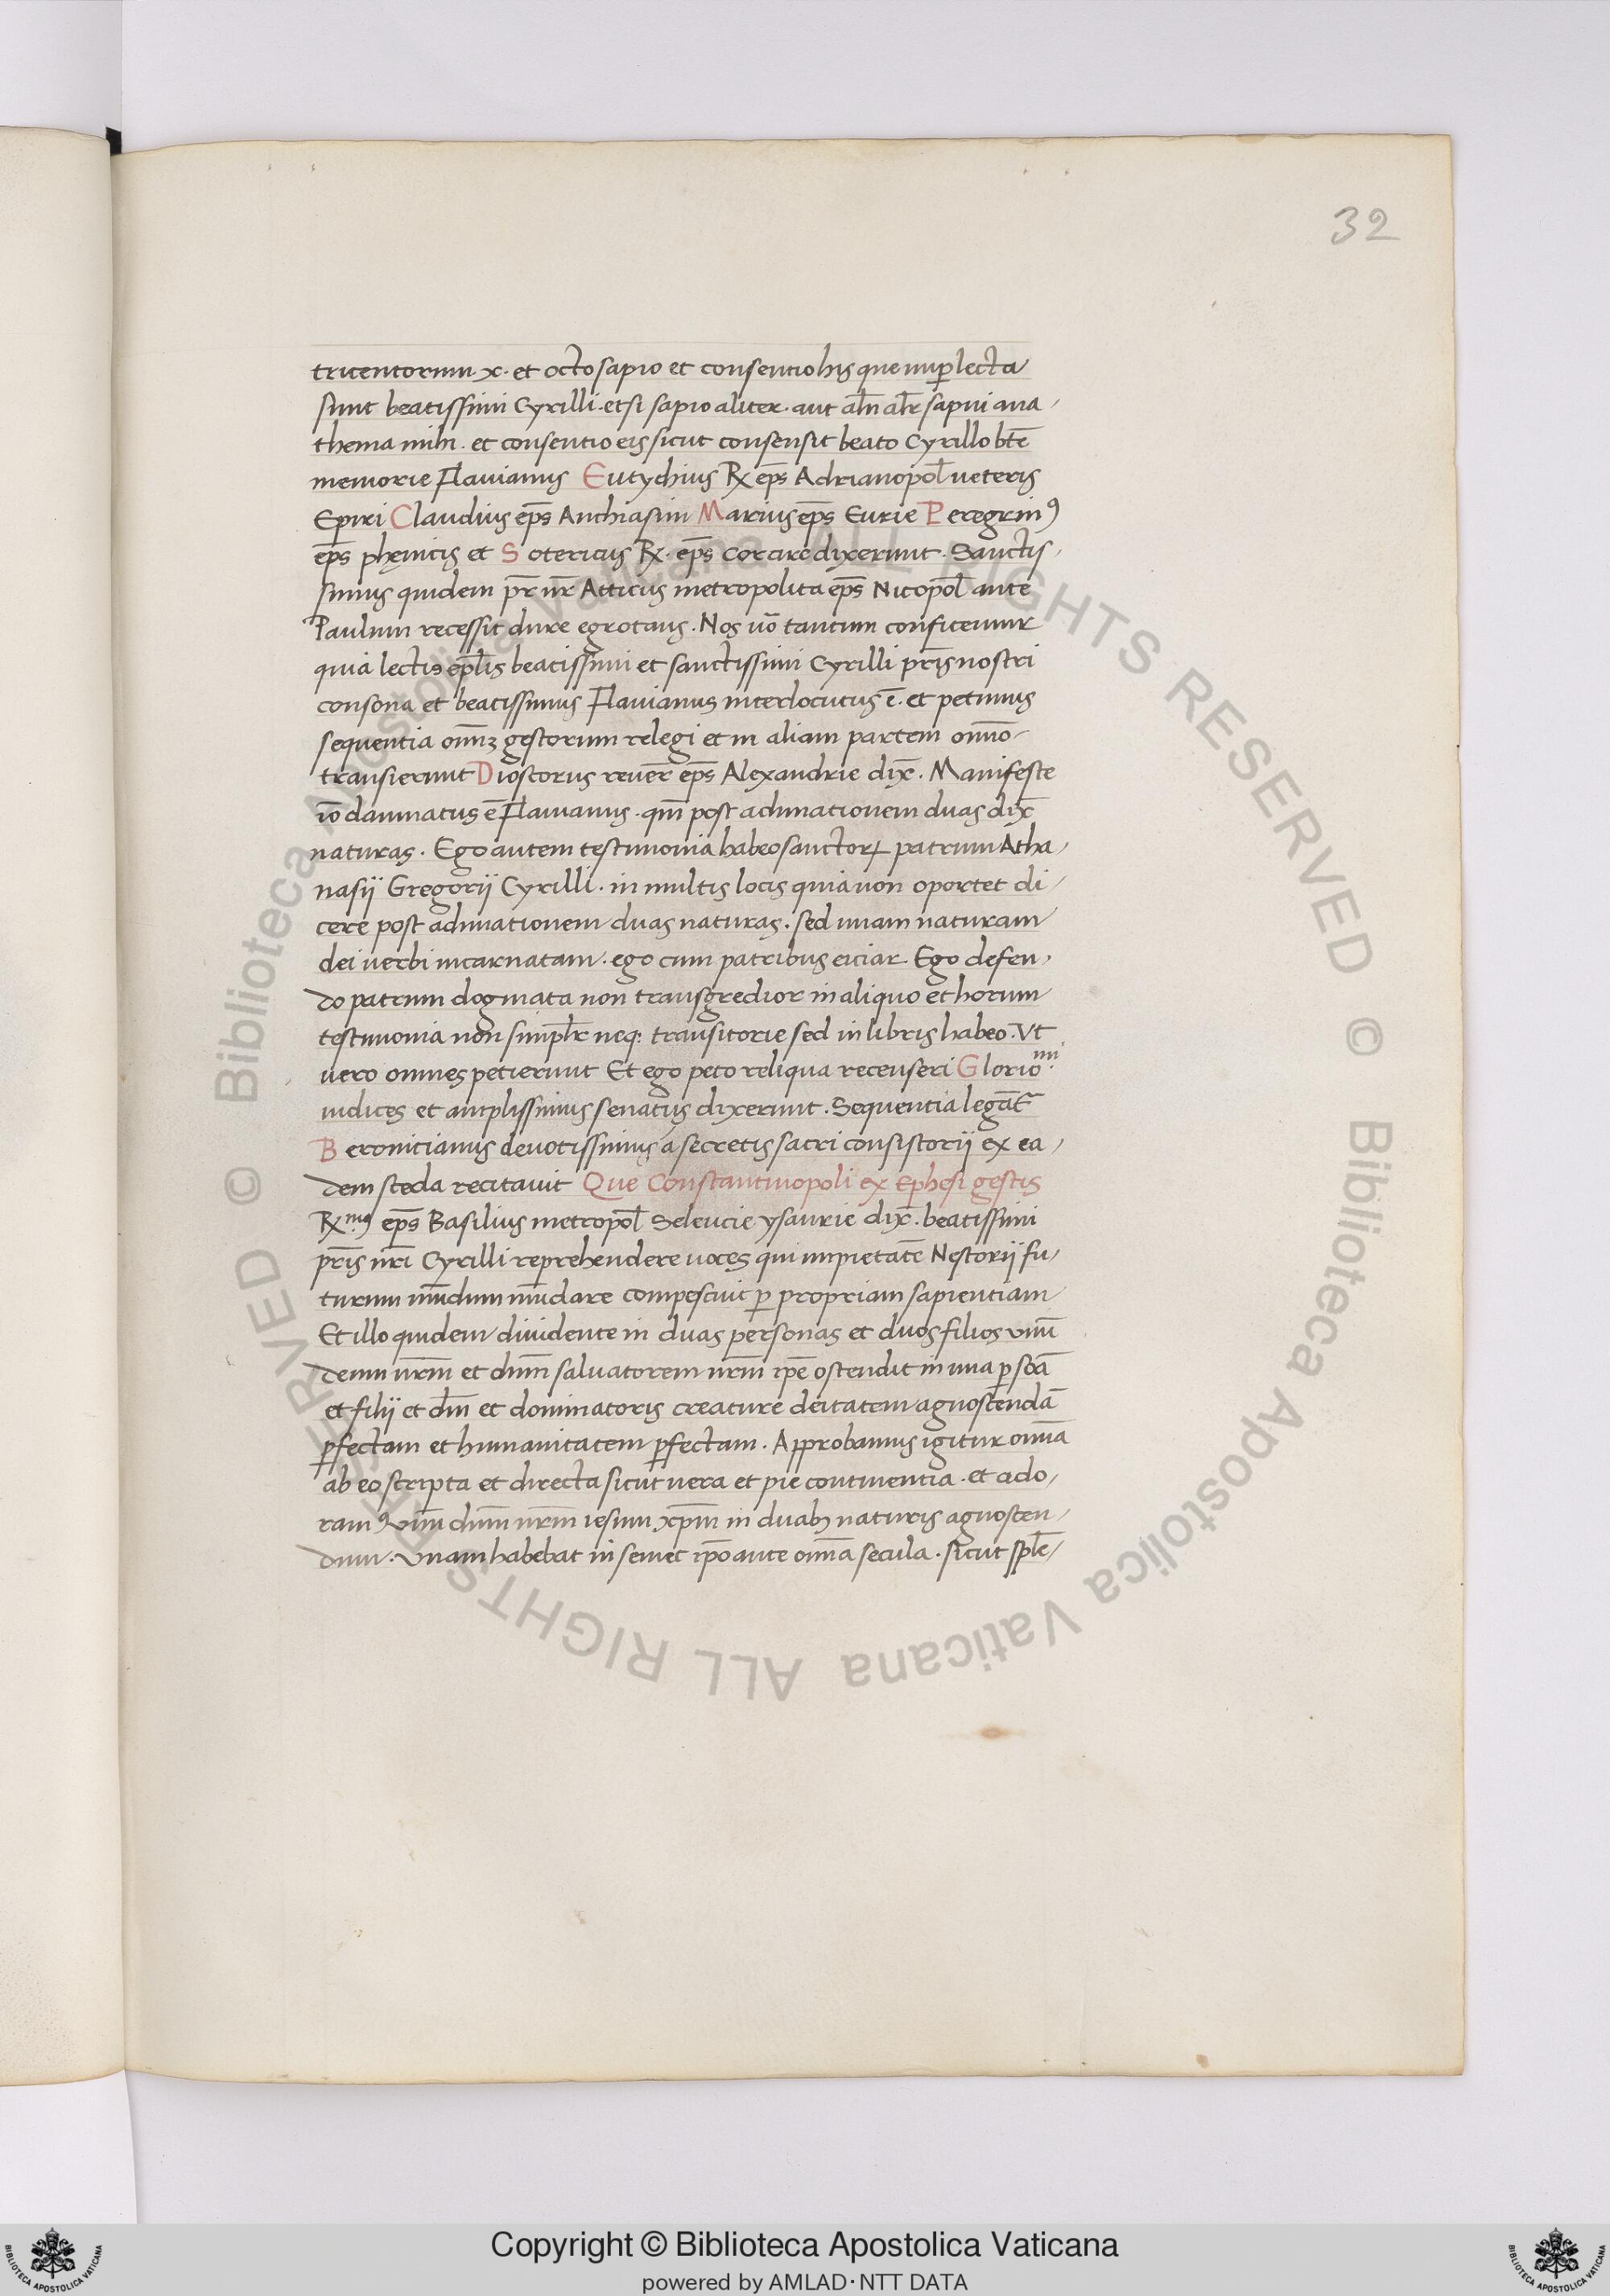 32
tricentorum x. et octo sapio et consentio his que nuper lecta
sunt beatissimi Cyrilli. et si sapio aliter. aut al̄n al̄r sapui ana-
thema mihi. et consentio eis sicut consensit beato Cyrillo bt̄e
memorie Flauianus Eutychius R͞x ep̄s Adrianopol̄ ueteris
Epiri Claudius ep̄s Anchiasim Marius ep̄s Eurie Peregrinꝰ
ep̄s phęnicis et Sotericus R͞x. ep̄s Corcire dixerunt. Sanctis-
simus quidem pr̄ nr̄ Atticus metropolita ep̄s Nicopol̄ ante
Paulum recessit dure egrotans. Nos uō tantum confitemur
quia lectis ep̄lis beatissimi et sanctissimi Cyrilli pr̄is nostri
consona et beatissimus Flauianus interlocutus ē. et petimus
sequentia om̄ıꝫ gestorum relegi et in aliam partem om̄o
transierunt Dioscorus reuer̄ ep̄s Alexandrie dix̄. Manifeste
iō damnatus ē Flauianus. qm̄ post adunationem duas dix̄
naturas. Ego autem testimonia habeo sanctoꝝ patrum Atha-
nasij Gregorij Cyrilli. in multis locis quia non oportet di-
cere post adunationem duas naturas. sed unam naturam
dei uerbi incarnatam. ego cum patribus eiciar. Ego defen-
do patrum dogmata non transgredior in aliquo et horum
testimonia non simpl̄r neq: transitorie sed in libris habeo. Vt
uero omnes petierunt Et ego peto reliqua recenseri Glorio.mi
iudices et amplissimus senatus dixerunt. Sequentia legāt᷑
Beronicianus deuotissimus a secretis sacri consistorii ex ea-
dem sceda recitauit Que Constantinopoli ex Ephesi gestis
R͞x.mꝰ ep̄s Basilius metropol̄ Seleucie ysaurie dix̄. beatissimi
pr̄is nr̄i Cyrilli reprehendere uoces qui impietatē Nestorij fu-
turum mūdum mūdare compescuit ꝑ propriam sapientiam
Et illo quidem diuidente in duas personas et duos filios unū
deum nr̄m et dn̄m saluatorem nr̄m ip̄e ostendit in una ꝑsoā
et filij et dn̄i et dominatoris creature deitatem agnoscendā
ꝑfectam et humanitatem ꝑfectam. Approbamus igitur om̄ia
ab eo scripta et directa sicut uera et pie continentia. et ado-
ramꝰ unū dn̄m nr̄m iesum xp̄m in duabꝫ naturis agnoscen-
dum. Vnam habebat in semet ip̄o ante om̄a secula. sicut spl̄e-
Copyright © Biblioteca Apostolica Vaticana
powered by AMLAD·NTT DATA
© Biblioteca Apostolica Vaticana ALL RIGHTS RESERVED
© Biblioteca Apostolica Vaticana ALL RIGHTS RESERVED